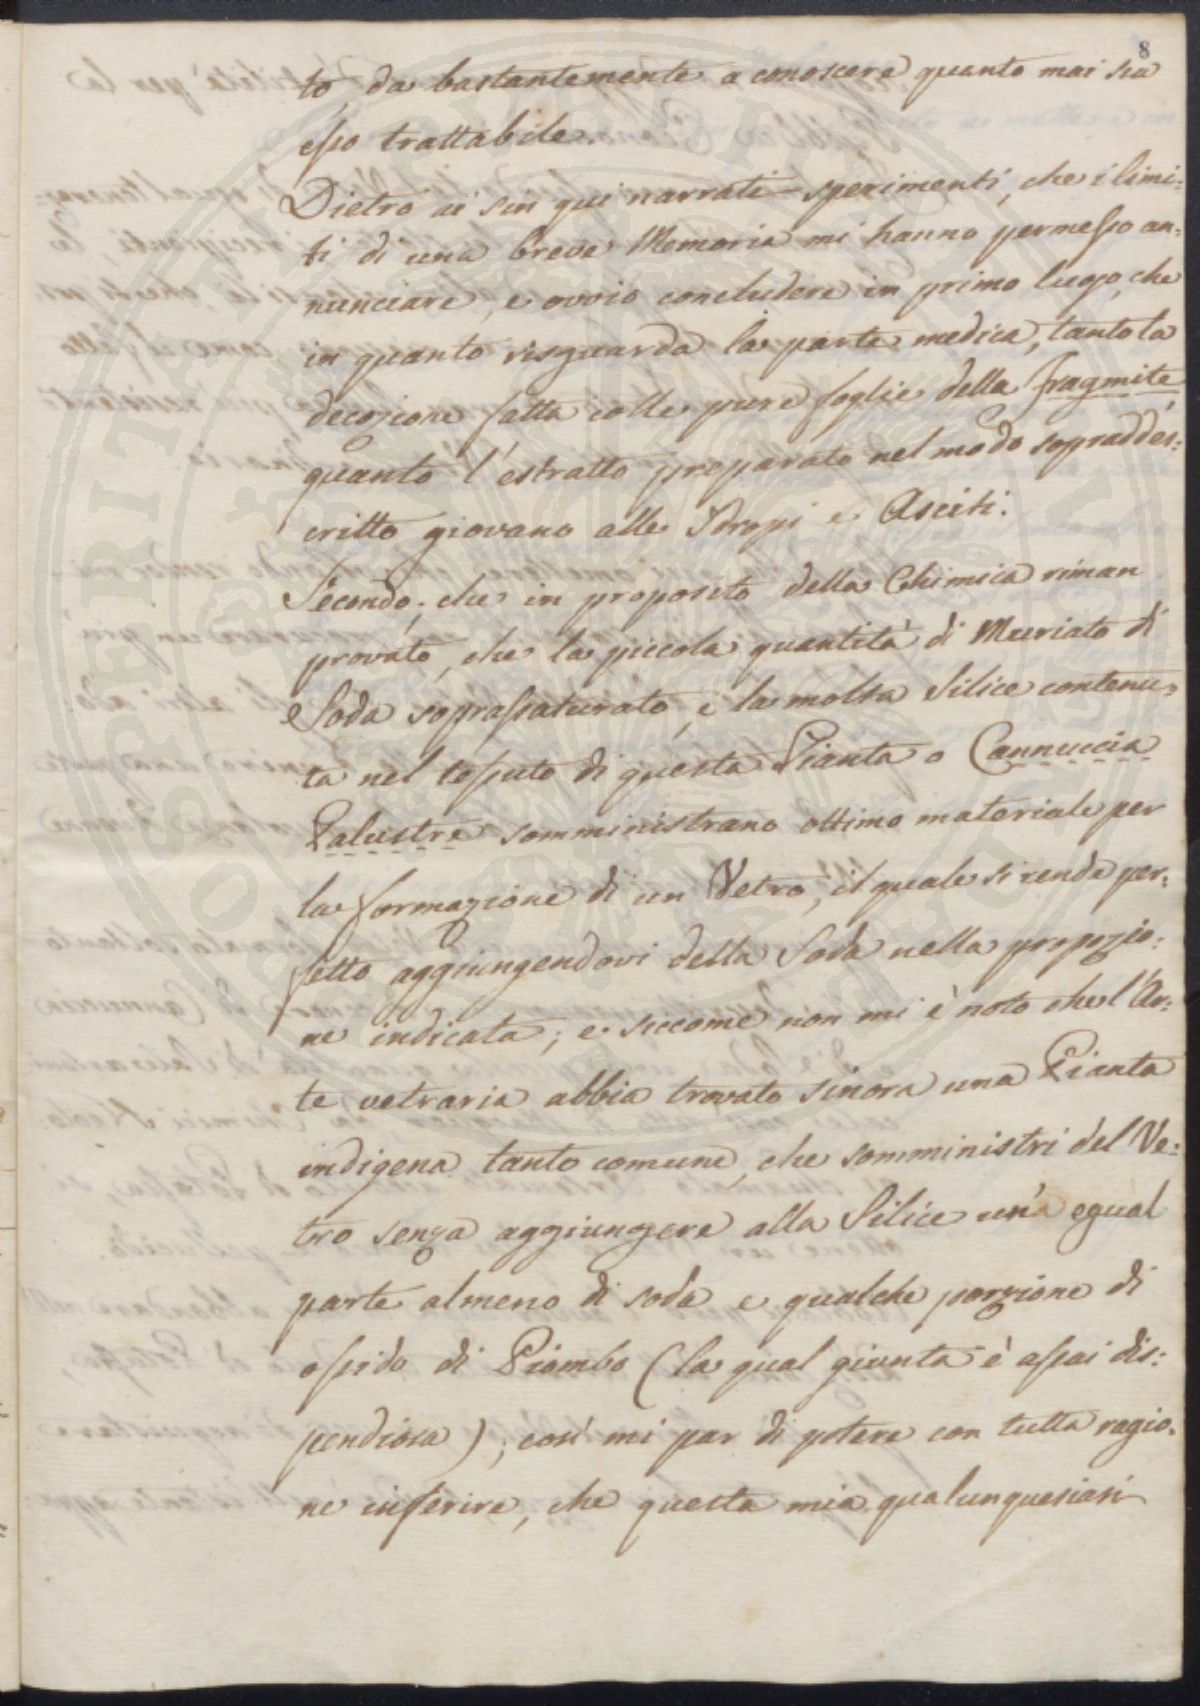 8
to, da bastantemente a conoscere quanto mai sia
esso trattabile.
Dietro ai sin qui narrati sperimenti, che i limi:
ti di una breve Memoria mi hanno permesso an:
nunciare, e ovvio concludere in primo luogo, che
in quanto risguarda la parte medica, tanto la
decozione fatta colle pure foglie della fragmite,
quanto l'estratto preparato nel modo sopraddes:
critto giovano alle Idropi e Asciti.
Secondo, che in proposito della Chimica riman
provato, che la piccola quantità di Muriato di
Soda soprassaturato, e la molta Silice contenu:
ta nel tessuto di questa Pianta o Cannuccia
Palustre somministrano ottimo materiale per
la formazione di un Vetro, il quale si rende per:
fetto aggiungendovi della Soda nella propozio:
ne indicata; e siccome non mi è noto che l'Ar:
te vetraria abbia trovato sinora una Pianta
indigena tanto comune, che somministri del Ve:
tro senza aggiungere alla Silice un'a egual
parte almeno di soda e qualche porzione di
ossido di Piombo (la qual giunta è assai dis:
pendiosa), così mi par di potere con tutta ragio:
ne inferire, che questa mia qualunquesiasi